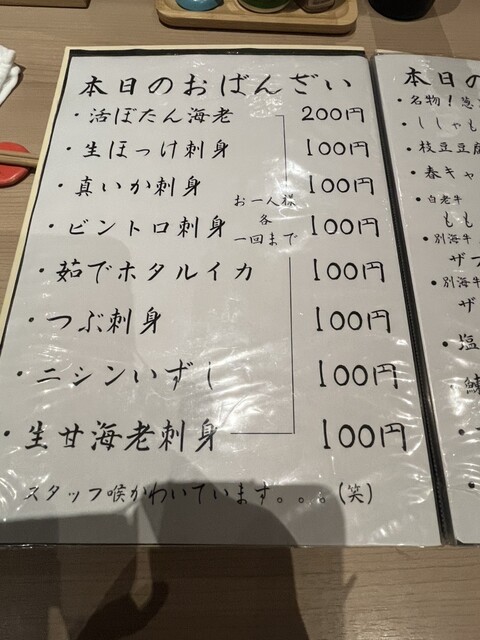 本日のおばんざい
・活ぼたん海老 200円
・生ほっけ刺身 100円
・真いか刺身 100円
・ビントロ刺身 100円
・茹でホタルイカ 100円
・つぶ刺身 100円
・ニシンいずし 100円
・生甘海老刺身 100円
お一人様
各
一回まで
スタッフ喉かわいています。。。(笑)
本日の
・名物!
・ししゃも
・枝豆豆腐
・春キャ
・白老牛
もも
・別海牛
ザブ
・別海牛
ザ
・塩